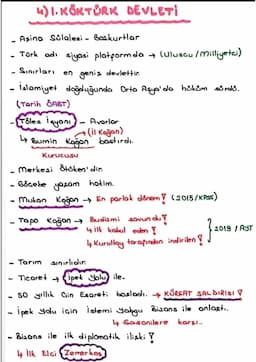 4) I. KÖKTÜRK DEVLETİ
- Asina Sülalesi - Başkurtlar
- Türk adı siyasi platformda → (Ulusçu / Milliyetçi)
- Sınırları en geniş devlettir.
- İslamiyet doğduğunda Orta Asya'da hüküm sürdü.
(Tarih ÖABT)
- Töles İsyanı - Avarlar
(İl Kağan)
↳ Bumin Kağan bastırdı.
Kurucusu
- Merkezi Ötüken'dir.
- Göçebe yaşam hakim.
- Mukan Kağan → En parlak dönem! (2015/KPSS)
- Tapo Kağan → Budizmi savundu!
↳ İlk kabul eden!
↳ Kurultay tarafından indirilen!
2019 / AYT
- Tarım sınırlıdır.
- Ticaret → İpek Yolu ile.
- 50 yıllık Çin Esareti başladı. → KÜRŞAT SALDIRISI!
- İpek Yolu için İstemi Yabgu Bizans ile anlaştı.
↳ Sasanilere karşı.
- Bizans ile ilk diplomatik ilişki!
↳ İlk Elçi Zemerkos